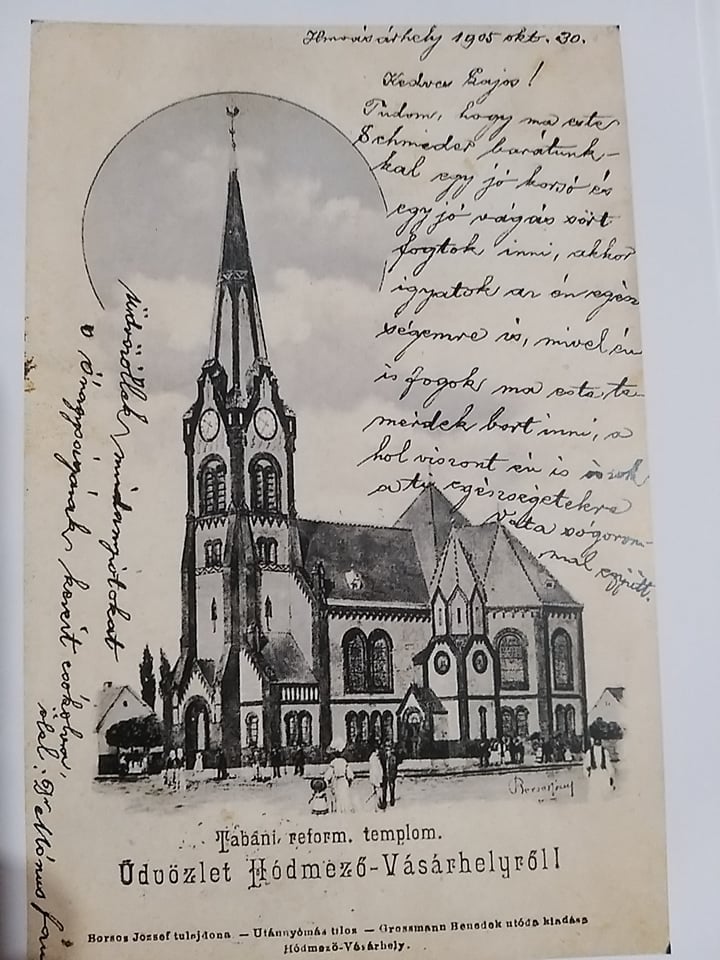 Hmvásárhely 1905 okt. 30.
Kedves Lajos!
Tudom, hogy ma este
Schmieder barátunk-
kal egy jó korsó és
egy jó vágás sört
fogtok inni, akkor
igyatok az én egész
ségemre is, mivel én
is fogok ma este te
mérdek bort inni, a
hol viszont én is iszok
a ti egészségetekre
Vata sógorom-
mal együtt.
Üdvözöllek mindannyiotokat
ő nagyságának kezeit csókolva,
ölel: Dr Mónus
Borsos József
Tabáni reform. templom.
Üdvözlet Hódmező-Vásárhelyről!
Borsos József tulajdona. — Utánnyomás tilos — Grossmann Benedek utóda kiadása
Hódmező-Vásárhely.